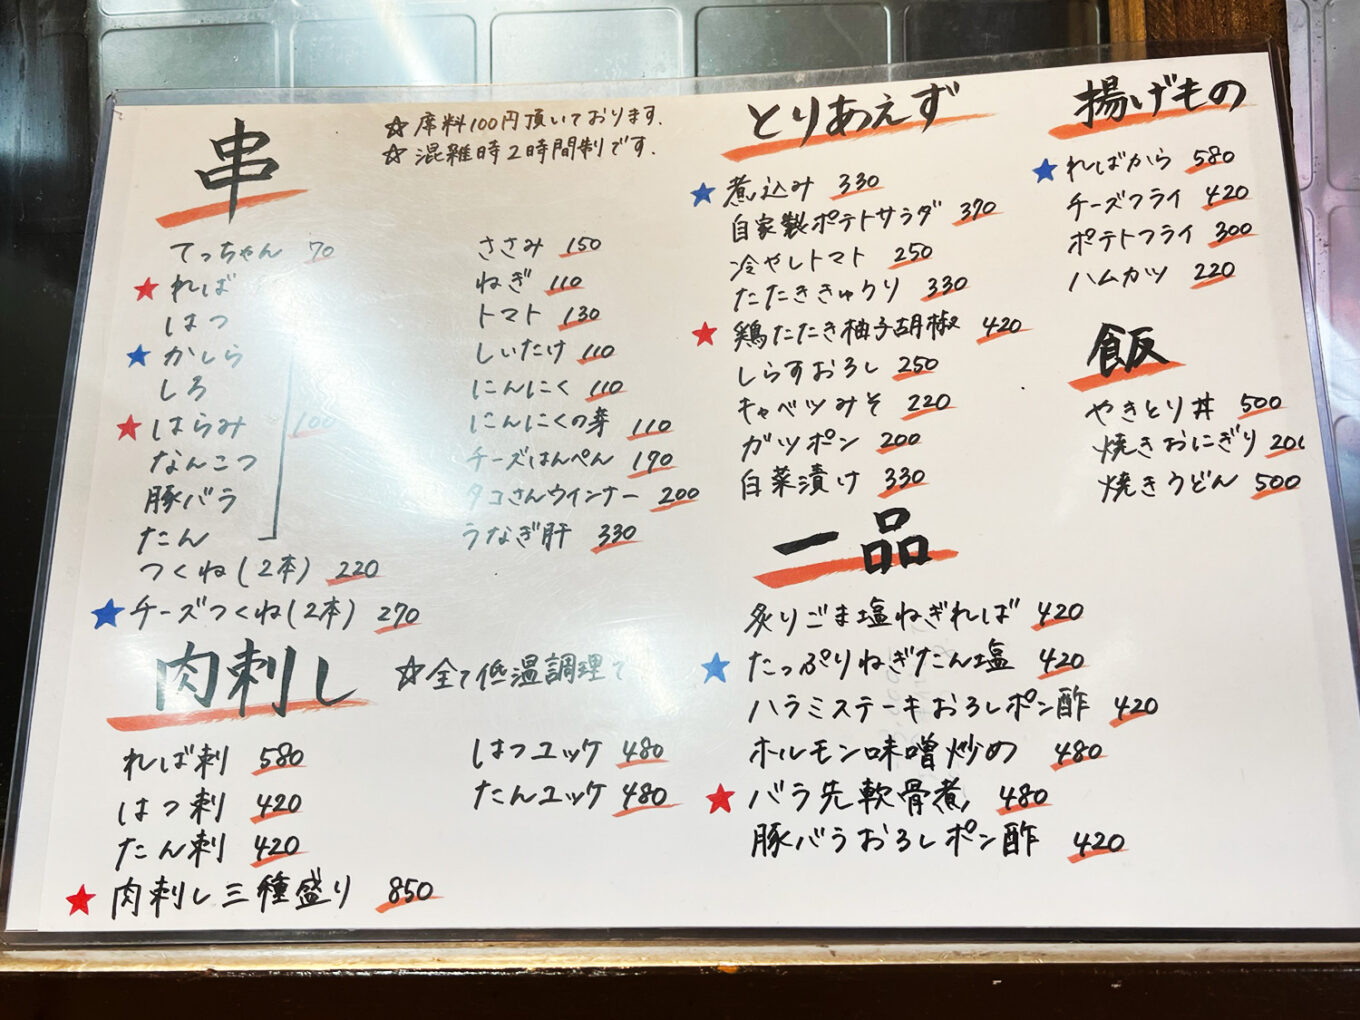 串
☆ 席料100円頂いております.
☆ 混雑時2時間制です.
てっちゃん 70
★ ればー
はつ
★ かしら
しろ
★ はらみ 100
なんこつ
豚バラ
たん
つくね(2本) 220
★ チーズつくね(2本) 270
ささみ 150
ねぎ 110
トマト 130
しいたけ 110
にんにく 110
にんにくの芽 110
チーズはんぺん 170
タコさんウインナー 200
うなぎ肝 330
肉刺し
☆全て低温調理で
れば刺 580
はつ刺 420
たん刺 420
★ 肉刺し三種盛り 850
はつユッケ 480
たんユッケ 480
とりあえず
★ 煮込み 330
自家製ポテトサラダ 370
冷やしトマト 250
たたききゅうり 330
★ 鶏たたき柚子胡椒 420
しらすおろし 250
キャベツみそ 220
ガツポン 200
白菜漬け 330
一品
炙りごま塩ねぎれば 420
★ たっぷりねぎたん塩 420
ハラミステーキおろしポン酢 420
ホルモン味噌炒め 480
★ バラ先軟骨煮 480
豚バラおろしポン酢 420
揚げもの
★ ればから 580
チーズフライ 420
ポテトフライ 300
ハムカツ 220
飯
やきとり丼 500
焼きおにぎり 200
焼きうどん 500